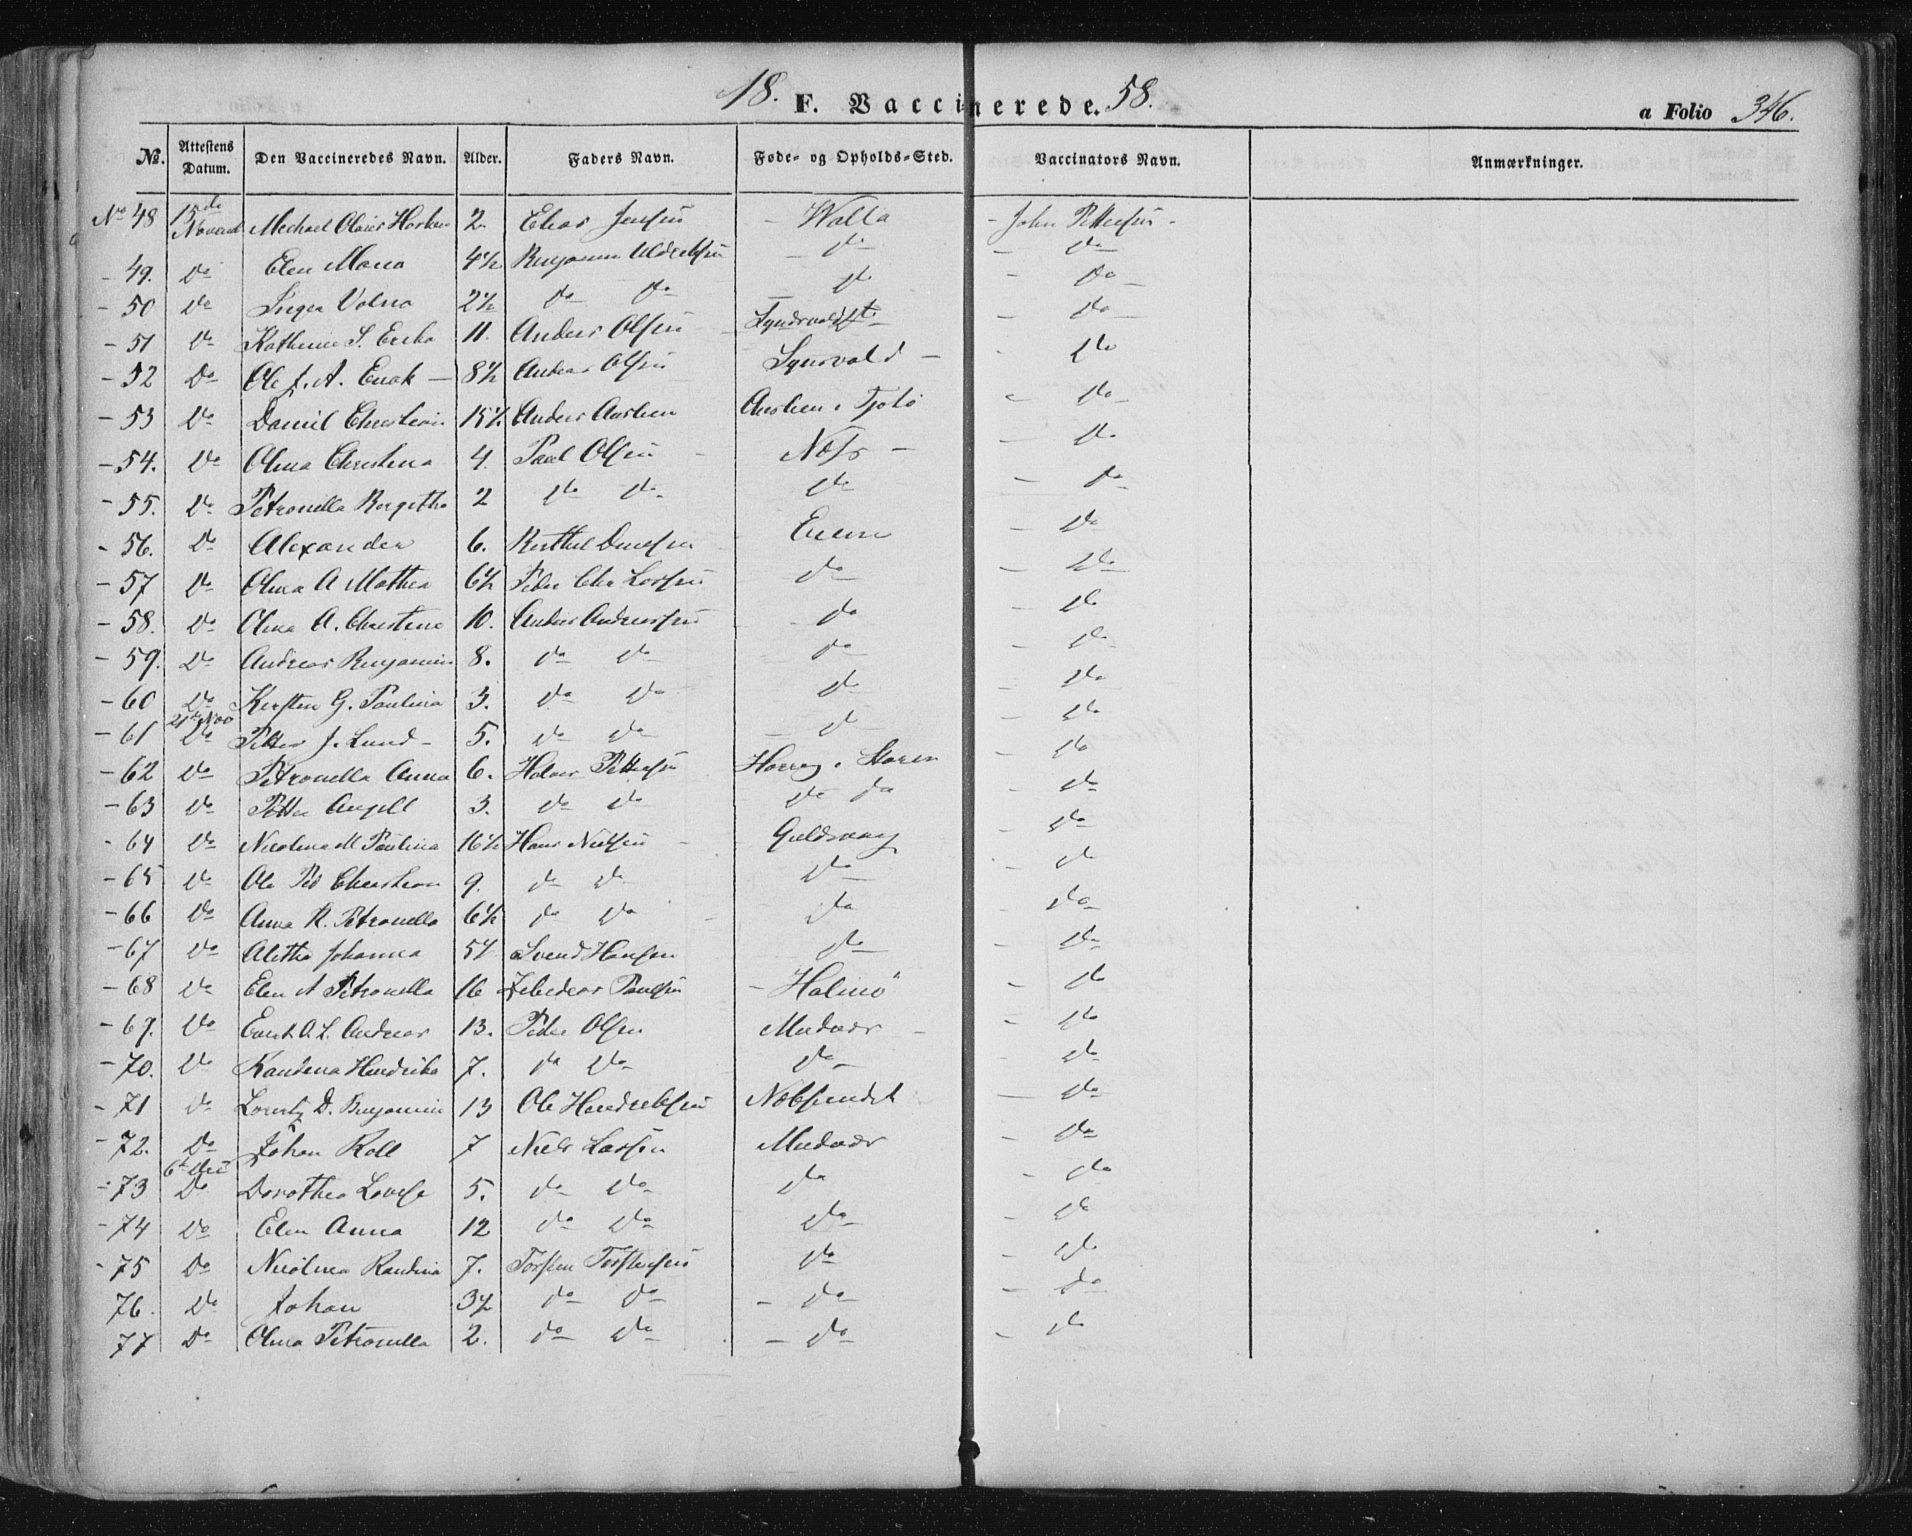 18. F. Vaccinerede. 58. a Folio 346.
No. Attestens Datum. Den Vaccineredes Navn. Alder. Faders Navn. Føde- og Opholds-Sted. Vaccinators Navn. Anmærkninger.
No 48 15de Novemb Michael Olaus 2. Elias Jensen - Walla - John Pettersen -
- 49. Do Elen Maria 4½ Benjamin Uldriksen - do - do
- 50 Do Inger Volna 2½ do do - do - do
- 51 Do Kathrine S. Ericka 11. Anders Olsen - do
- 52 Do Ole J. A. Enok - 8½ Andreas Olsen Synsvald - - do
- 53 Do Daniel Christian 15½ Anders Aashen Aashen i Tjotø - do
- 54. Do Olina Christina 4. Paul Olsen - - do
- 55. Do Petronella Bergitha 2 do do do - do
- 56. Do Alexander 6. - do
- 57 Do Olina A Mathea 6½ Peder Larsen do - do
- 58. Do Olina A. Christine 10. Anders Andreassen do - do
- 59. Do Andreas Benjamin 8. do do do - do
- 60 Do Kirsten G. Paulina 3. do do do - do
- 61 21de Nov Do Petter J. Lund - 5. do do - do - do
- 62 Do Petronella Anna 6. Pettersen - do
- 63 Do Petter Angell 3. do do do do - do
- 64 Do Nicolina M Paulina 16½ Hans Nielsen - Guldvaag - do
- 65 Do Ole Ped Christian 9. do do do - do
- 66 Do Anna R. Petronella 6½ do do - do - do
- 67 Do Aletha Johanna 5½ Svend Hansen do - do
- 68 Do Elen A Petronella 16 Zebedeas Paulsen - Halmø - do
- 69. Do Andreas 13. Peder Olsen Medvær - - do
- 70. Do Randina Hendrika 7. do do do - do
- 71 Do Lorentz D. Benjamin 13 Ole Hendriksen - do
- 72. Do Johan Roll 7 Niels Larsen Medvær - do
- 73 6te Dec Do Dorothea Lovise 5. do do do - do
- 74 Do Elen Anna 12 do do do - do
- 75 Do Nicolina Randina 7. Torsten Torstensen do - do
76. Do Johan 3½ do do - do - do
77 Do Olina Petronella 2. do do - do - do